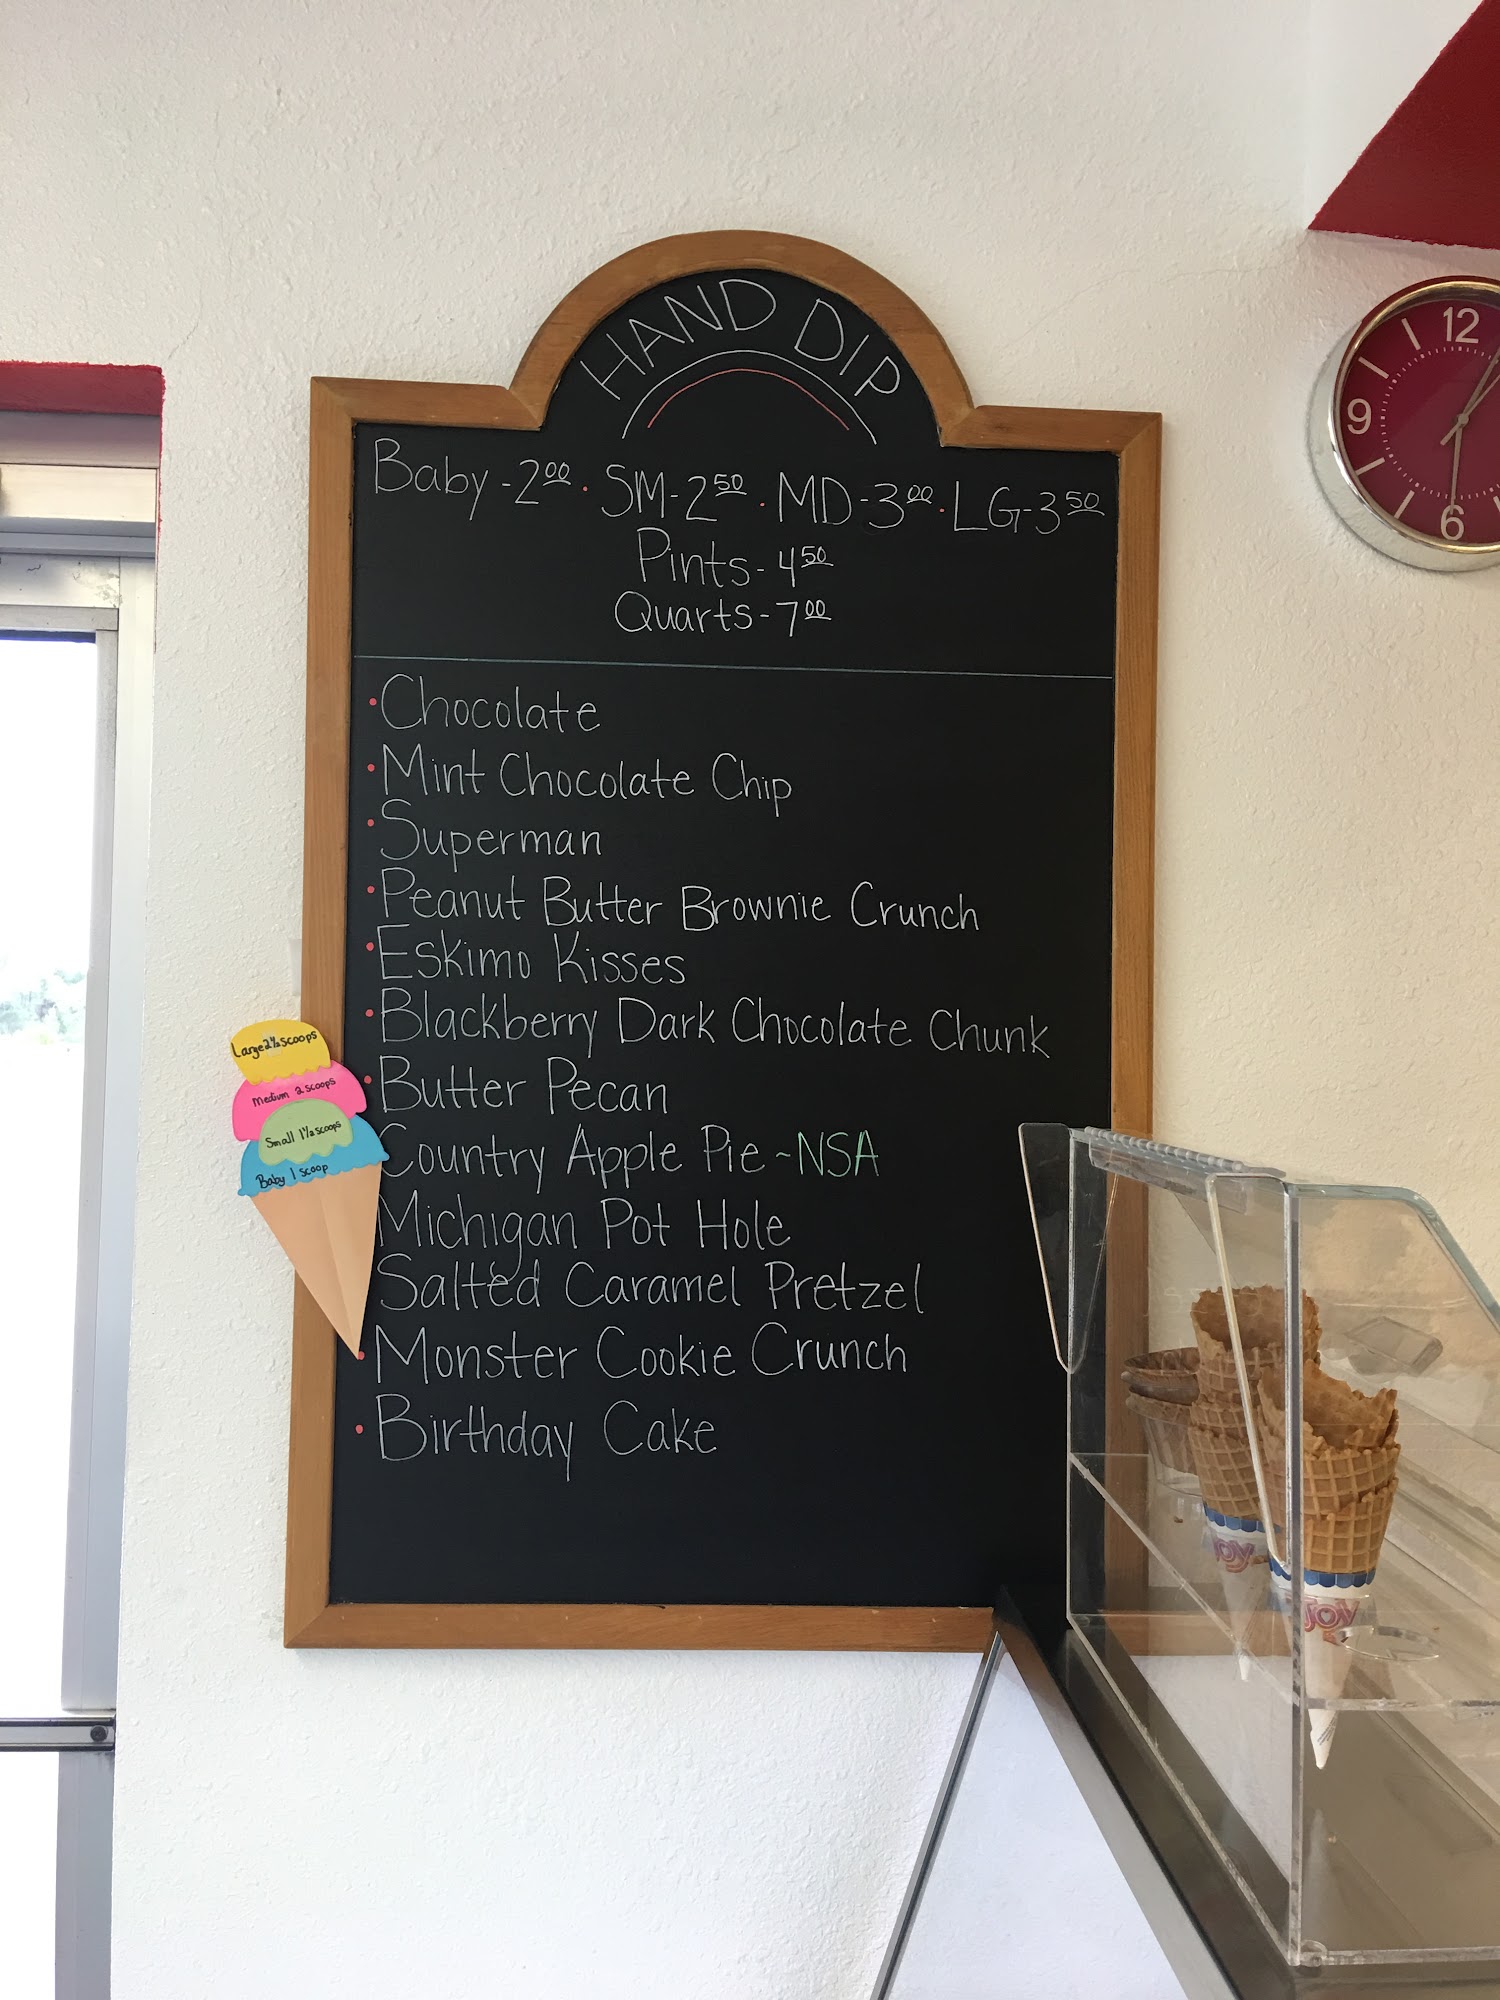 HAND DIP
Baby - 2.00 · SM - 2.50 · MD - 3.00 · LG - 3.50
Pints - 4.50
Quarts - 7.00
• Chocolate
• Mint Chocolate Chip
• Superman
• Peanut Butter Brownie Crunch
• Eskimo Kisses
• Blackberry Dark Chocolate Chunk
• Butter Pecan
Country Apple Pie ~ NSA
Michigan Pot Hole
Salted Caramel Pretzel
• Monster Cookie Crunch
• Birthday Cake
Large 2½ scoops
Medium 2 scoops
Small 1½ scoops
Baby 1 scoop
12
9
6
JOY
JOY